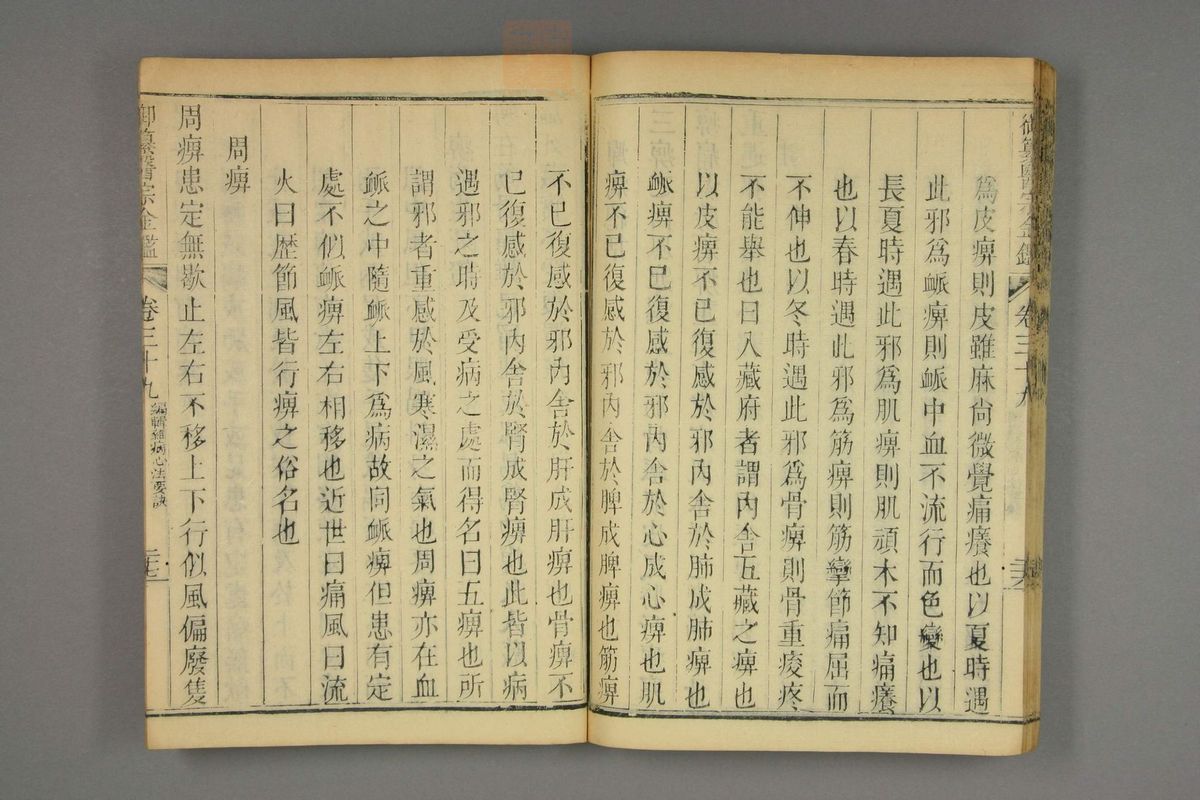 御纂醫宗金鑑 卷三十九
為皮痹則皮雖麻尚微覺痛癢也以夏時遇
此邪為衇痹則衇中血不流行而色變也以
長夏時遇此邪為肌痹則肌頑木不知痛癢
也以春時遇此邪為筋痹則筋攣節痛屈而
不伸也以冬時遇此邪為骨痹則骨重痠疼
不能舉也曰入藏府者謂內舍五藏之痹也
以皮痹不已復感於邪內舍於肺成肺痹也
衇痹不已復感於邪內舍於心成心痹也肌
痹不已復感於邪內舍於脾成脾痹也筋痹
不已復感於邪內舍於肝成肝痹也骨痹不
已復感於邪內舍於腎成腎痹也此皆以病
遇邪之時及受病之處而得名曰五痹也所
謂邪者重感於風寒濕之氣也周痹亦在血
衇之中隨衇上下為病故同衇痹但患有定
處不似衇痹左右相移也近世曰痛風曰流
火曰歷節風皆行痹之俗名也
周痹
周痹患定無歇止左右不移上下行似風偏廢隻
御纂醫宗金鑑 卷三十九 編輯雜病心法要訣